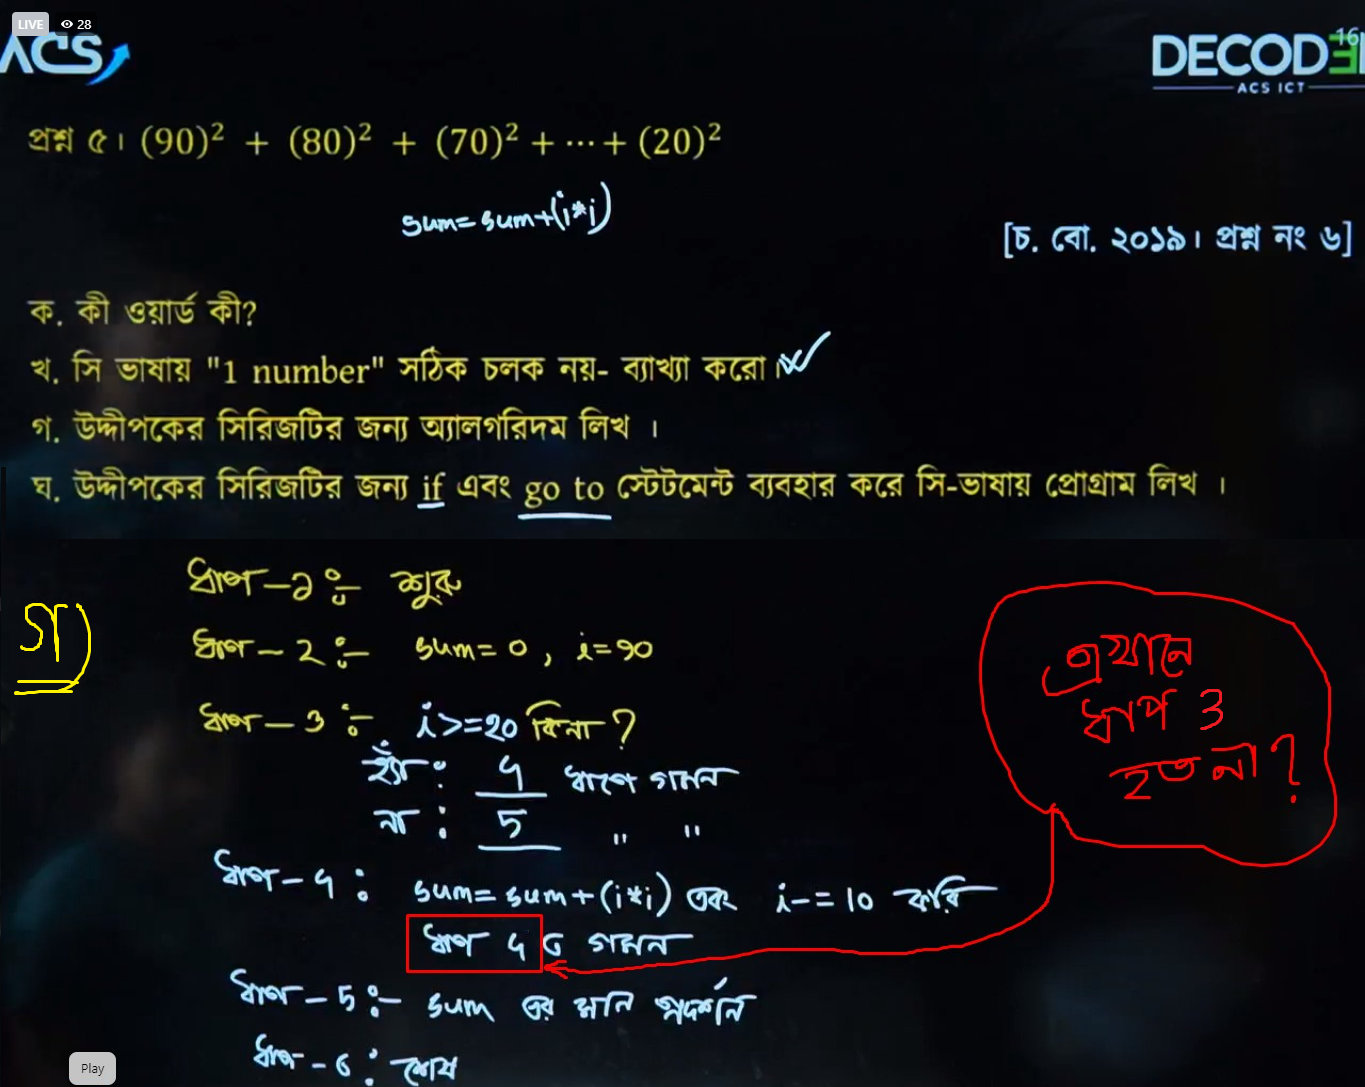 LIVE 28
ACS
16
DECODE
ACS ICT
প্রশ্ন ৫। (90)² + (80)² + (70)² + ⋯ + (20)²
sum=sum+(i*i)
[চ. বো. ২০১৯। প্রশ্ন নং ৬]
ক. কী ওয়ার্ড কী?
খ. সি ভাষায় "1 number" সঠিক চলক নয়- ব্যাখ্যা করো।
গ. উদ্দীপকের সিরিজটির জন্য অ্যালগরিদম লিখ ।
ঘ. উদ্দীপকের সিরিজটির জন্য if এবং go to স্টেটমেন্ট ব্যবহার করে সি-ভাষায় প্রোগ্রাম লিখ ।
গ)
ধাপ-১ঃ- শুরু
ধাপ-2ঃ- sum=0, i=90
ধাপ-3ঃ- i>=20 কিনা?
হ্যাঁ: 4 ধাপে গমন
না: 5 " "
ধাপ-4: sum=sum+(i*i) এবং i-=10 করি
ধাপ 4 এ গমন
ধাপ-5ঃ- sum এর মান প্রদর্শন
ধাপ-6: শেষ
এখানে
ধাপ 3
হত না?
Play